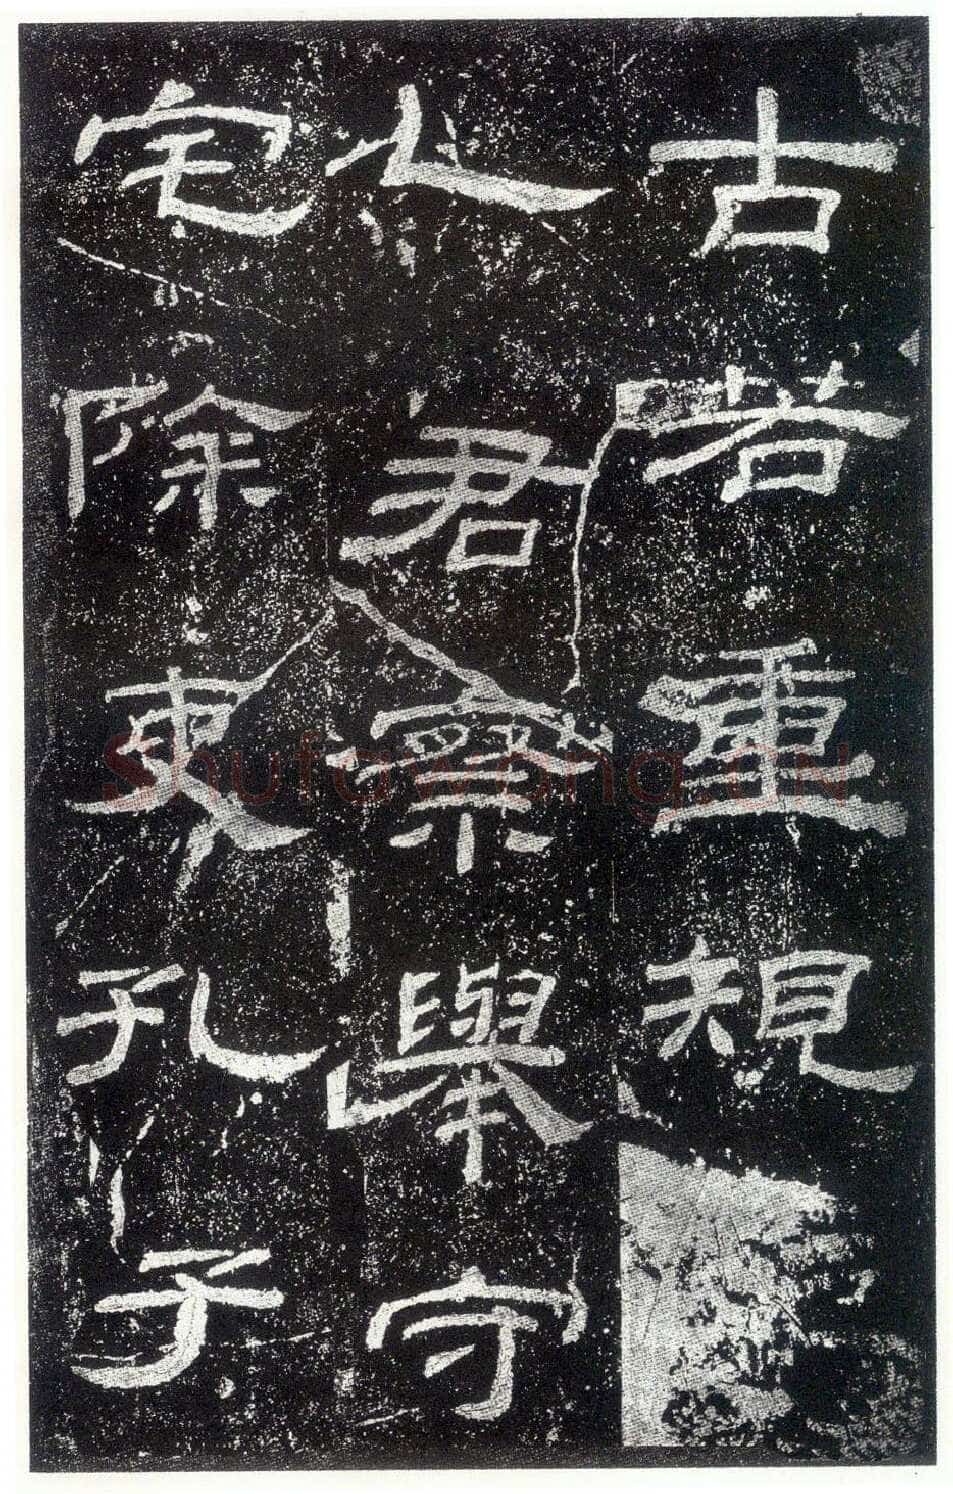 古若重規
乙君察舉守
宅除吏孔子
Shufawang.CN